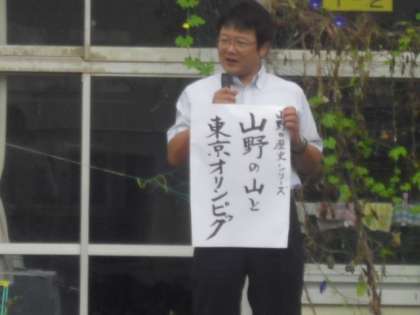 山野の歴史シリーズ
山野の山と
東京オリンピック
1-2